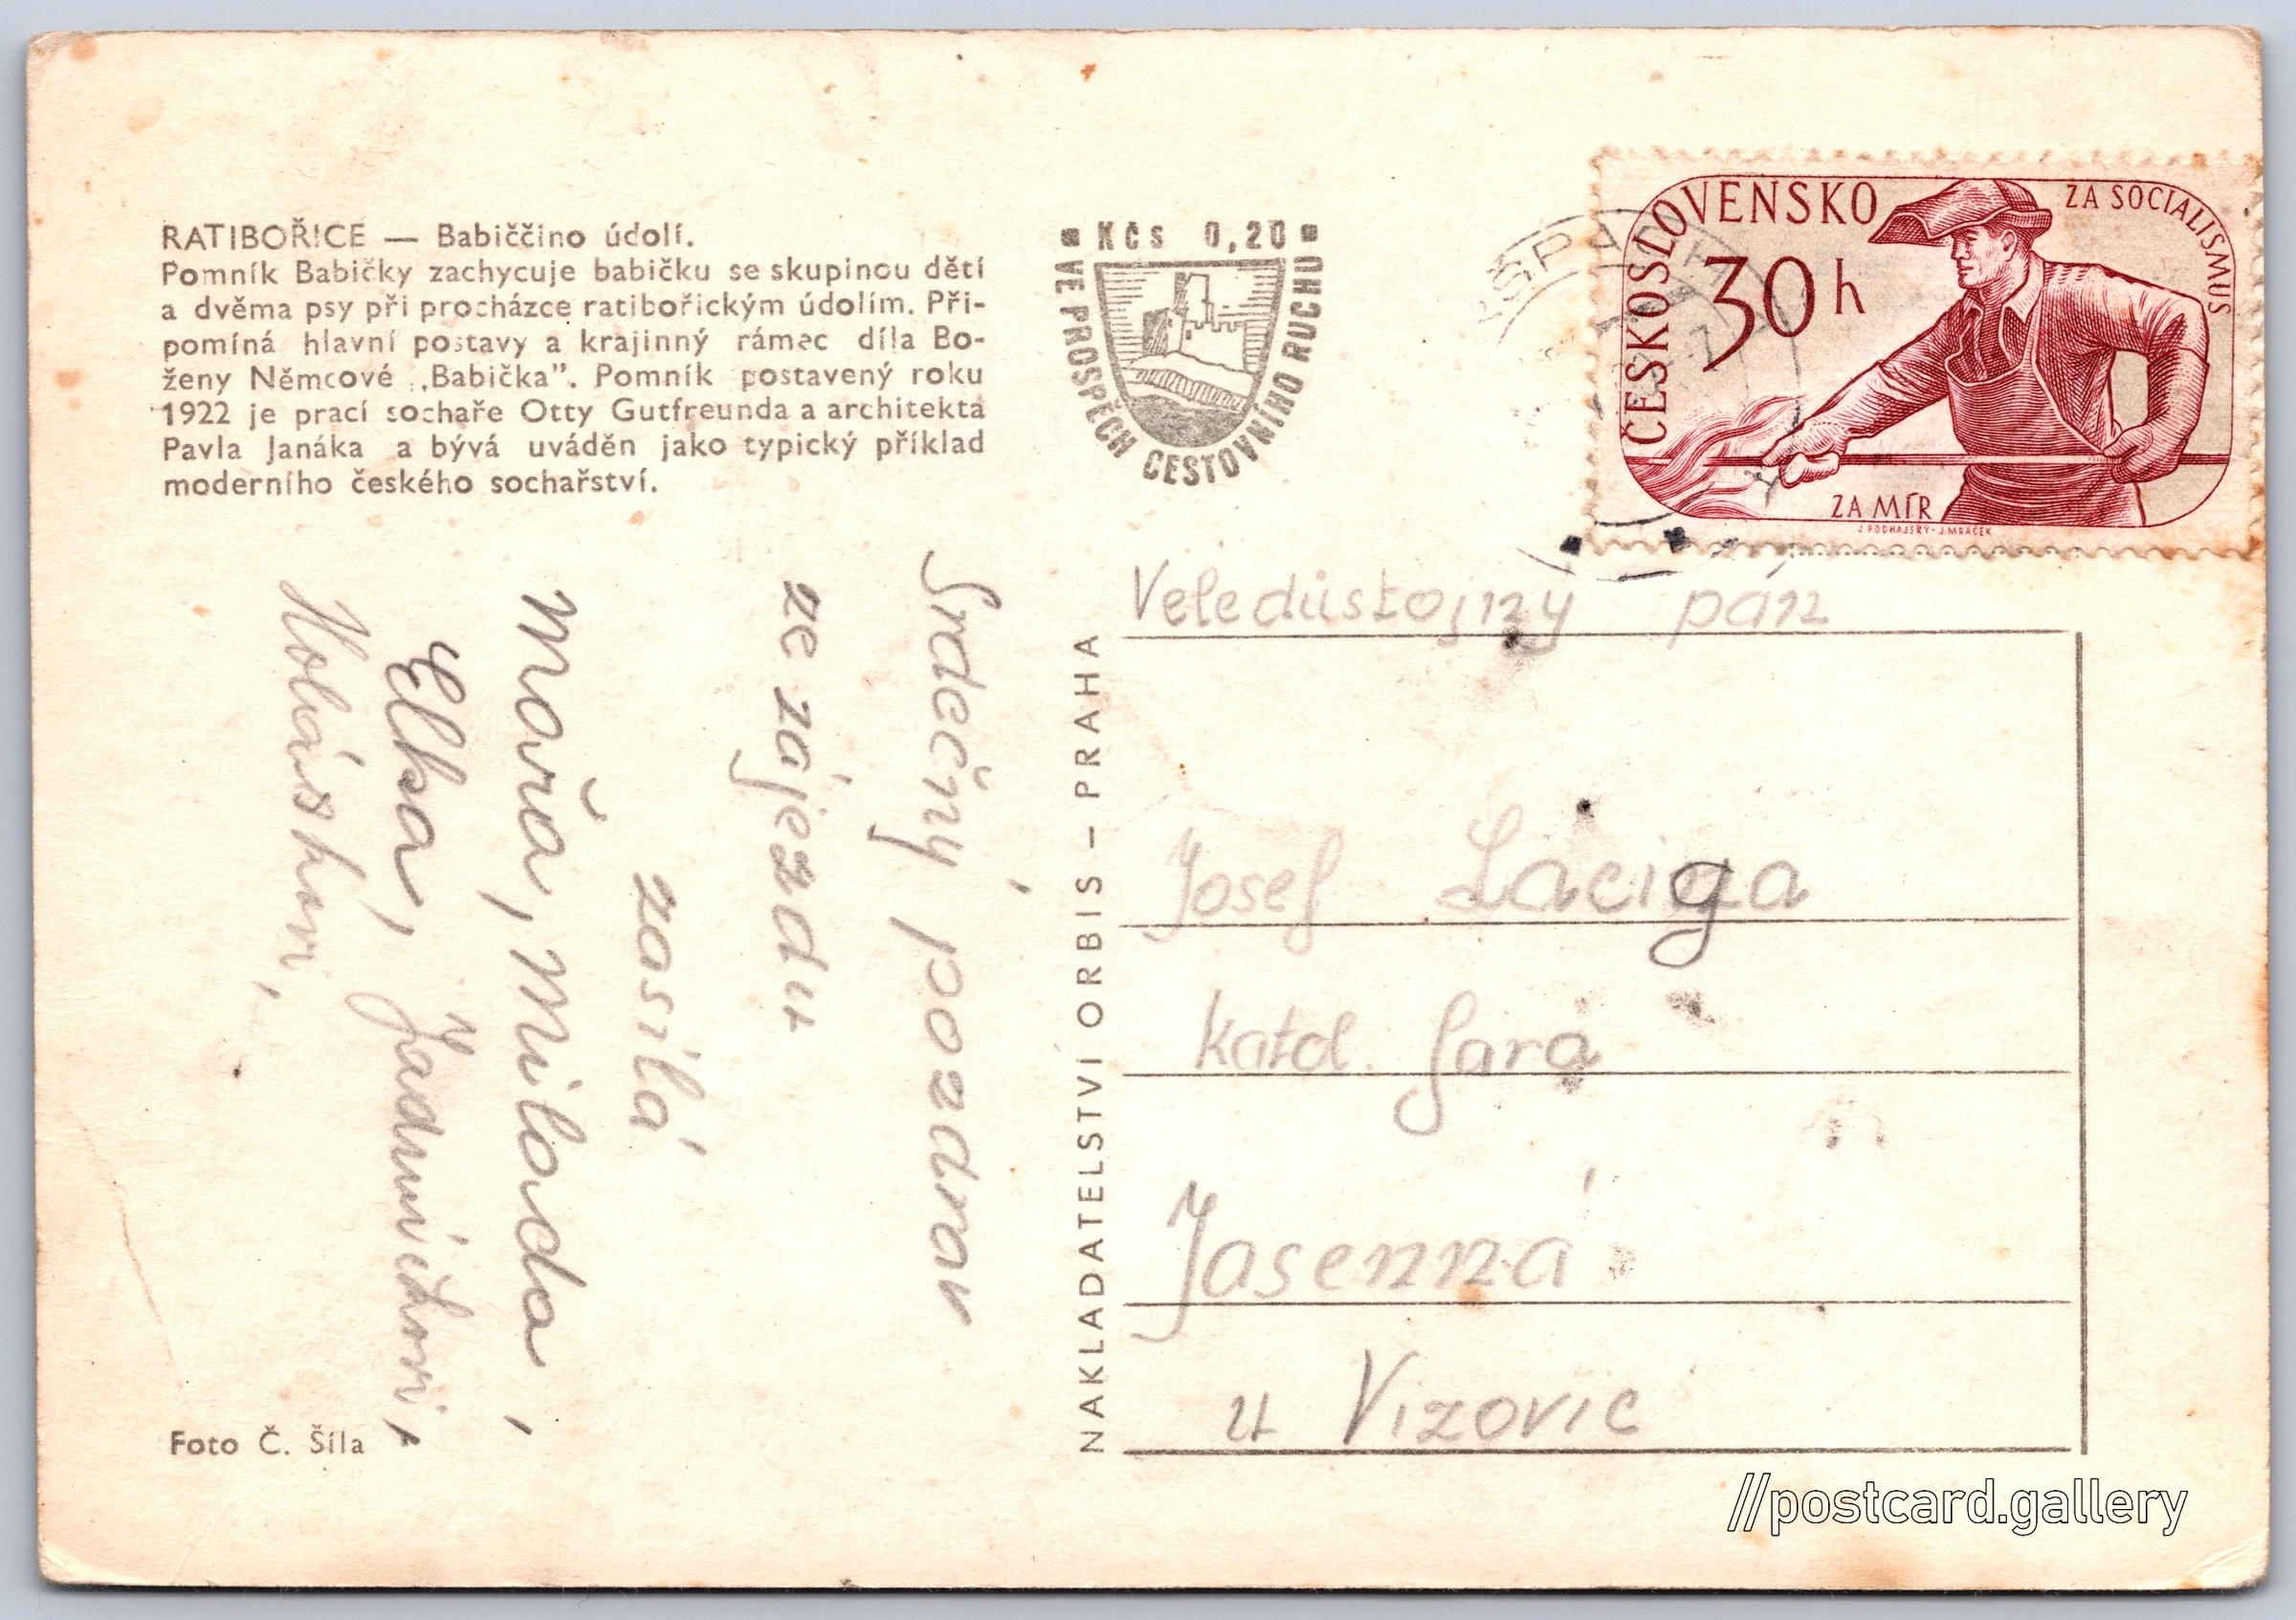 RATIBOŘICE — Babiččino údolí.
Pomník Babičky zachycuje babičku se skupinou dětí
a dvěma psy při procházce ratibořickým údolím. Při-
pomíná hlavní postavy a krajinný rámec díla Bo-
ženy Němcové „Babička”. Pomník postavený roku
1922 je prací sochaře Otty Gutfreunda a architekta
Pavla Janáka a bývá uváděn jako typický příklad
moderního českého sochařství.
Kčs 0,20
VE PROSPĚCH CESTOVNÍHO RUCHU
ČESKOSLOVENSKO
ZA SOCIALISMUS
30 h
ZA MÍR
J. PODHAJSKÝ - J. MRÁČEK
Srdečný pozdrav
ze zájezdu
zasílá
Mařa, Miloda,
Elka,
NAKLADATELSTVÍ ORBIS – PRAHA
Veledůstojný pán
Josef Laciga
katol. fara
Jasenná
u Vizovic
Foto Č. Šíla
//postcard.gallery